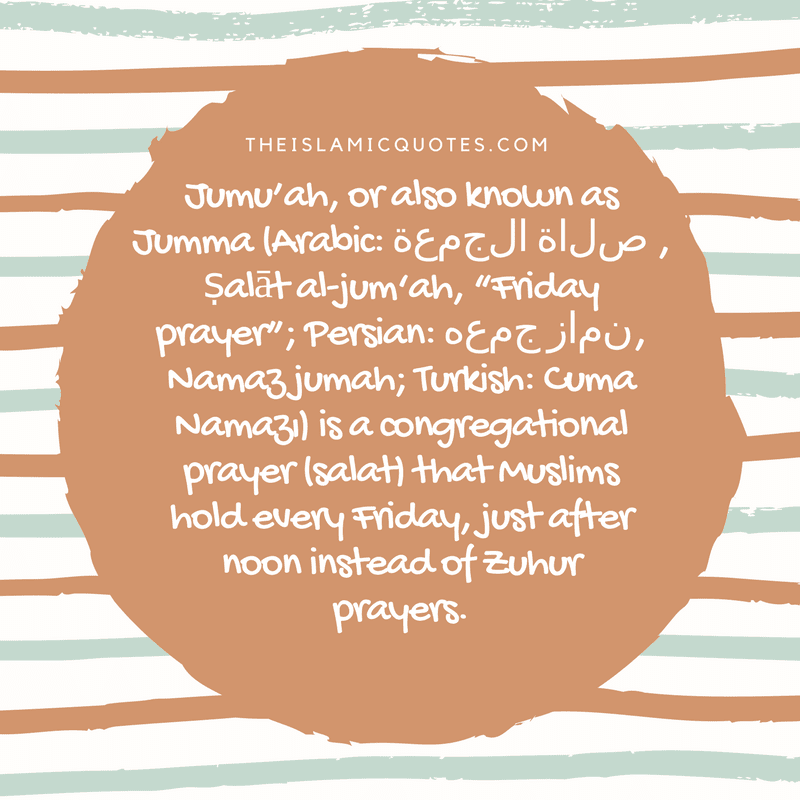 THEISLAMICQUOTES.COM
Jumu'ah, or also known as
Jumma (Arabic: صلاة الجمعة ,
Ṣalāt al-jum'ah, "Friday
prayer"; Persian: نماز جمعه,
Namaz jumah; Turkish: Cuma
Namazı) is a congregational
prayer (salat) that Muslims
hold every Friday, just after
noon instead of Zuhur
prayers.